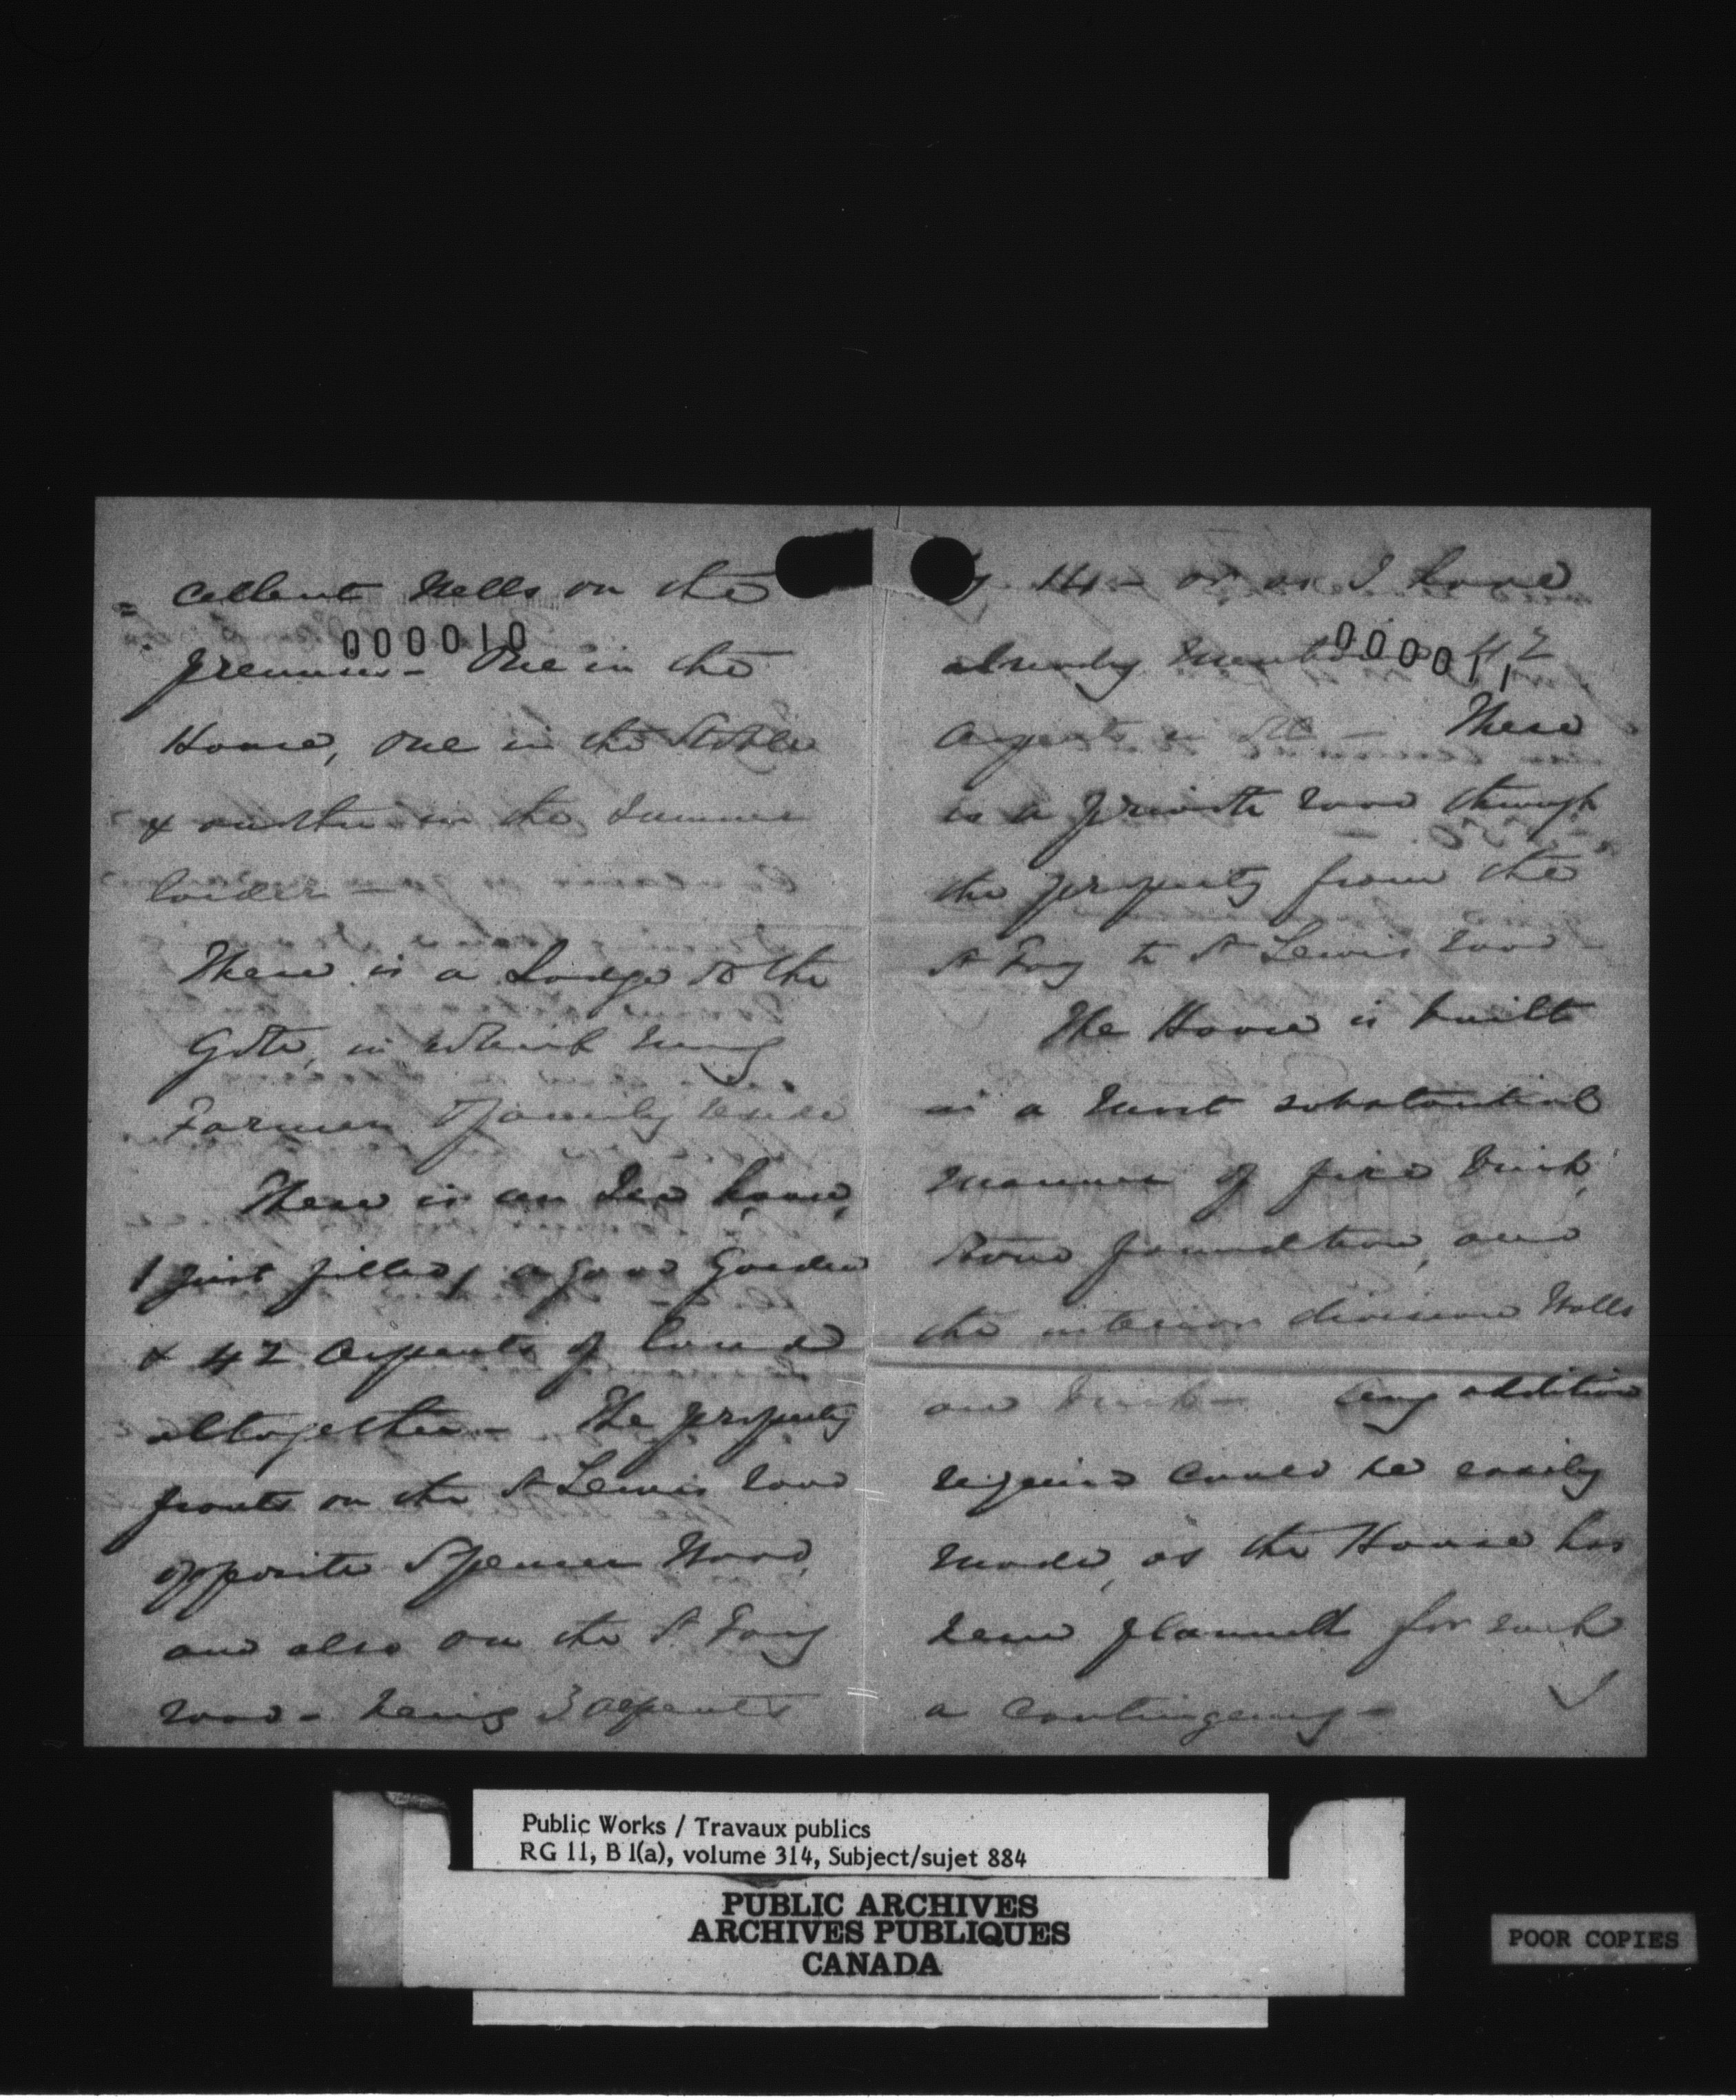 = cellent Wells on the
000010
premises - One in the
House, one in the Stable
& another in the Summer
larder -
There is a Lodge to the
Gate, in which my
Farmer & family reside
There is an Ice house,
( just filled, a good Garden
& 42 Arpents of land
altogether - The property
fronts on the St Lewis road
opposite Spencer Wood,
and also on the St Foy
road - being 3 arpents
by 14 - or as I have
000011
already mentioned 42
Arpents in all - There
is a private road through
the property from the
St Foy to St Lewis road -
The House is built
in a most substantial
manner of fire brick,
stone foundation, and
the interior division Walls
are brick - Any addition
required could be easily
made, as the House has
been planned for such
a contingency -
Public Works / Travaux publics
RG 11, B 1(a), volume 314, Subject/sujet 884
PUBLIC ARCHIVES
ARCHIVES PUBLIQUES
CANADA
POOR COPIES